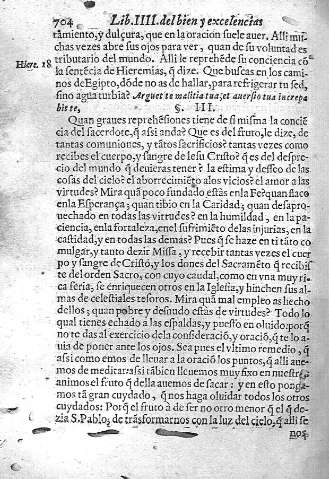 704 Lib. IIII. del bien y excelencias
tamiento, y dulçura, que en la oracion suele auer. Alli mu-
chas vezes abre sus ojos para ver, quan de su voluntad es
tributario del mundo. Alli le reprehẽde su conciencia cõ
Hiere. 18. la sentẽcia de Hieremias, q̃ dize. Que buscas en los cami-
nos de Egipto, dõde no as de hallar, para refrigerar tu sed,
sino agua turbia? Arguet te malitia tua, et auersio tua increpa
bit te,
§. III.
Quan graues reprehẽsiones tiene de si misma la conciẽ
cia del sacerdote, q̃ assi anda? Que es del fruto, le dize, de
tantas comuniones, y tãtos sacrificios? tantas vezes como
recibes el cuerpo, y sangre de Iesu Cristo? q̃ es del despre-
cio del mundo q̃ deuieras tener? la estima y desseo de las
cosas del cielo? el aborrecimiẽto a los vicios? el amor a las
virtudes? Mira quã poco fundado estàs en la Fe? quan flaco
en la Esperança; quan tibio en la Caridad; quan desapro-
uechado en todas las virtudes? en la humildad, en la pa-
ciencia, en la fortaleza, en el sufrimiẽto de las injurias, en la
castidad, y en todas las demas? Pues q̃ se haze en ti tãto co
mulgar, y tanto dezir Missa, y recebir tantas vezes el cuer
po y sangre de Cristo, y los dones del Sacramẽto q̃ recibis
te del orden Sacro, con cuyo caudal, como en vna muy ri-
ca feria, se enriquecen otros en la Iglesia, y hinchen sus al-
mas de celestiales tesoros. Mira quã mal empleo as hecho
dellos; quan pobre y desnudo estàs de virtudes? Todo lo
qual tienes echado a las espaldas, y puesto en oluido: porq̃
no te das al exercicio de la consideraciõ, y oraciõ, q̃ te lo a-
uia de poner ante los ojos. Sea pues el vltimo remedio, q̃
assi como emos de lleuar a la oraciõ los puntos, q̃ alli aue-
mos de meditar assi tãbien lleuemos fixo en nuestros
animos el fruto q̃ della auemos de sacar: y en esto ponga-
mos tã gran cuydado, q̃ nos haga oluidar todos los otros
cuydados: Porq̃ el fruto à de ser no otro menor q̃ el q̃ de-
zia S. Pablo; de trãsformarnos con la luz del cielo, q̃ alli se
nos